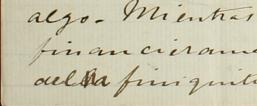 algo. Mientras
financierame
del finiquit